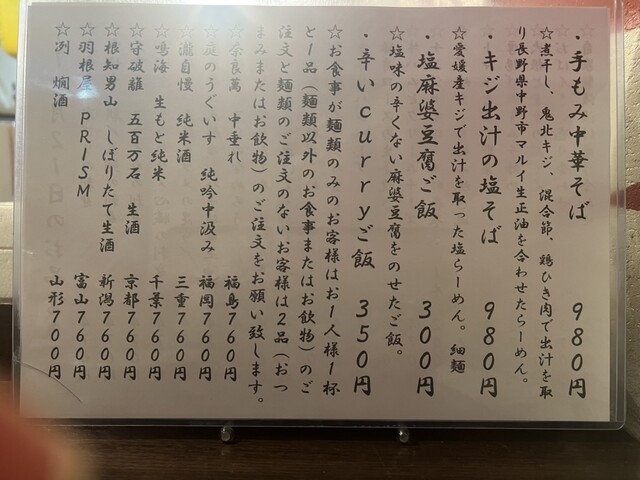 ・手もみ中華そば 980円
☆煮干し、鬼北キジ、混合節、鶏ひき肉で出汁を取
り長野県中野市マルイ生正油を合わせたらーめん。
・キジ出汁の塩そば 980円
☆愛媛産キジで出汁を取った塩らーめん。細麺
・塩麻婆豆腐ご飯 300円
☆塩味の辛くない麻婆豆腐をのせたご飯。
・辛いcurryご飯 350円
☆お食事が麺類のみのお客様はお1人様1杯
と1品(麺類以外のお食事またはお飲物)のご
注文と麺類のご注文のないお客様は2品(おつ
まみまたはお飲物)のご注文をお願い致します。
☆奈良萬 中垂れ 福島760円
☆庭のうぐいす 純吟中汲み 福岡760円
☆瀧自慢 純米酒 三重760円
☆鳴海 生もと純米 千葉760円
☆守破龍 五百万石 生酒 京都760円
☆根知男山 しぼりたて生酒 新潟760円
☆羽根屋 PRISM 富山760円
☆洌 燗酒 山形700円